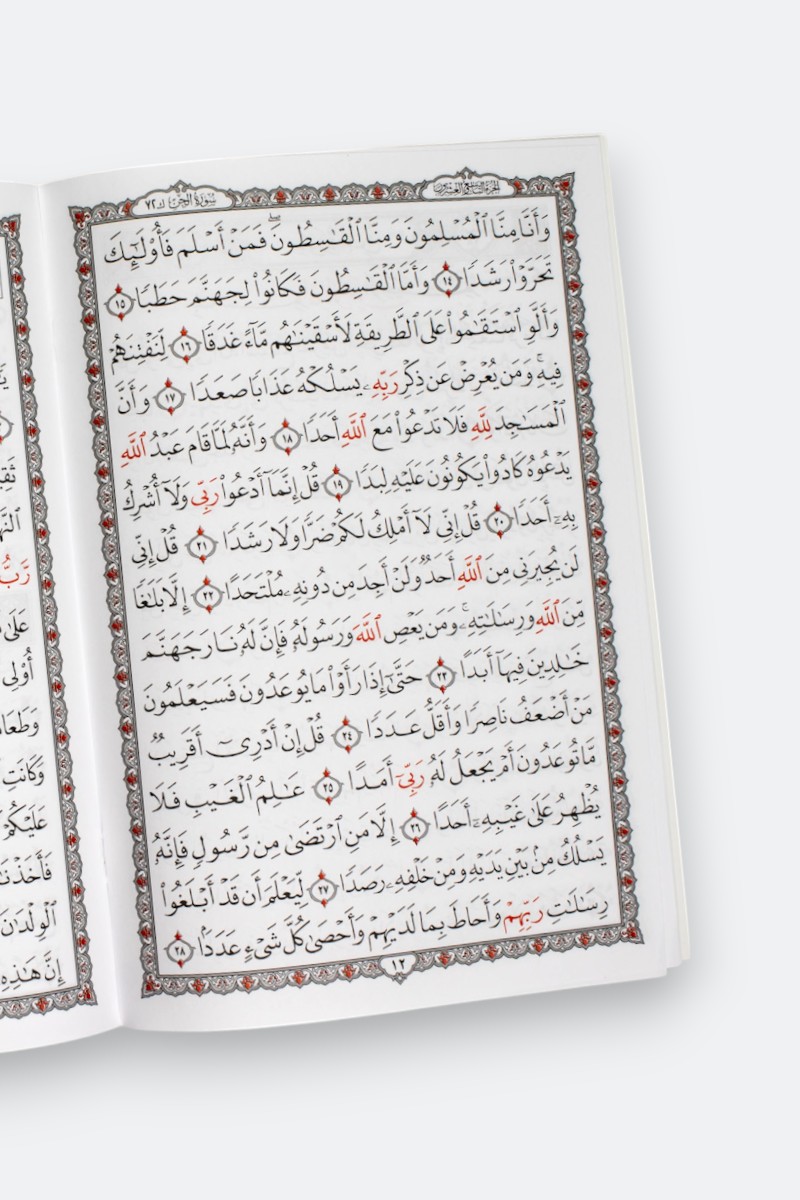 الجزء التاسع والعشرون
سورة الجن ٧٢
وَأَنَّا مِنَّا ٱلْمُسْلِمُونَ وَمِنَّا ٱلْقَٰسِطُونَۖ فَمَنْ أَسْلَمَ فَأُو۟لَٰٓئِكَ
تَحَرَّوْا۟ رَشَدًا ١٤ وَأَمَّا ٱلْقَٰسِطُونَ فَكَانُوا۟ لِجَهَنَّمَ حَطَبًا ١٥
وَأَلَّوِ ٱسْتَقَٰمُوا۟ عَلَى ٱلطَّرِيقَةِ لَأَسْقَيْنَٰهُم مَّآءً غَدَقًا ١٦ لِّنَفْتِنَهُمْ
فِيهِۚ وَمَن يُعْرِضْ عَن ذِكْرِ رَبِّهِۦ يَسْلُكْهُ عَذَابًا صَعَدًا ١٧ وَأَنَّ
ٱلْمَسَٰجِدَ لِلَّهِ فَلَا تَدْعُوا۟ مَعَ ٱللَّهِ أَحَدًا ١٨ وَأَنَّهُۥ لَمَّا قَامَ عَبْدُ ٱللَّهِ
يَدْعُوهُ كَادُوا۟ يَكُونُونَ عَلَيْهِ لِبَدًا ١٩ قُلْ إِنَّمَآ أَدْعُوا۟ رَبِّى وَلَآ أُشْرِكُ
بِهِۦٓ أَحَدًا ٢٠ قُلْ إِنِّى لَآ أَمْلِكُ لَكُمْ ضَرًّا وَلَا رَشَدًا ٢١ قُلْ إِنِّى
لَن يُجِيرَنِى مِنَ ٱللَّهِ أَحَدٌ وَلَنْ أَجِدَ مِن دُونِهِۦ مُلْتَحَدًا ٢٢ إِلَّا بَلَٰغًا
مِّنَ ٱللَّهِ وَرِسَٰلَٰتِهِۦۚ وَمَن يَعْصِ ٱللَّهَ وَرَسُولَهُۥ فَإِنَّ لَهُۥ نَارَ جَهَنَّمَ
خَٰلِدِينَ فِيهَآ أَبَدًا ٢٣ حَتَّىٰٓ إِذَا رَأَوْا۟ مَا يُوعَدُونَ فَسَيَعْلَمُونَ
مَنْ أَضْعَفُ نَاصِرًا وَأَقَلُّ عَدَدًا ٢٤ قُلْ إِنْ أَدْرِىٓ أَقَرِيبٌ
مَّا تُوعَدُونَ أَمْ يَجْعَلُ لَهُۥ رَبِّىٓ أَمَدًا ٢٥ عَٰلِمُ ٱلْغَيْبِ فَلَا
يُظْهِرُ عَلَىٰ غَيْبِهِۦٓ أَحَدًا ٢٦ إِلَّا مَنِ ٱرْتَضَىٰ مِن رَّسُولٍ فَإِنَّهُۥ
يَسْلُكُ مِنۢ بَيْنِ يَدَيْهِ وَمِنْ خَلْفِهِۦ رَصَدًا ٢٧ لِّيَعْلَمَ أَن قَدْ أَبْلَغُوا۟
رِسَٰلَٰتِ رَبِّهِمْ وَأَحَاطَ بِمَا لَدَيْهِمْ وَأَحْصَىٰ كُلَّ شَىْءٍ عَدَدًۢا ٢٨
١٢
رَّبُّ
أُو۟لِى
وَكَانَتِ
عَلَيْكُمْ
فَأَخَذْنَٰ
ٱلْوِلْدَٰنَ
إِنَّ هَٰذِهِۦ